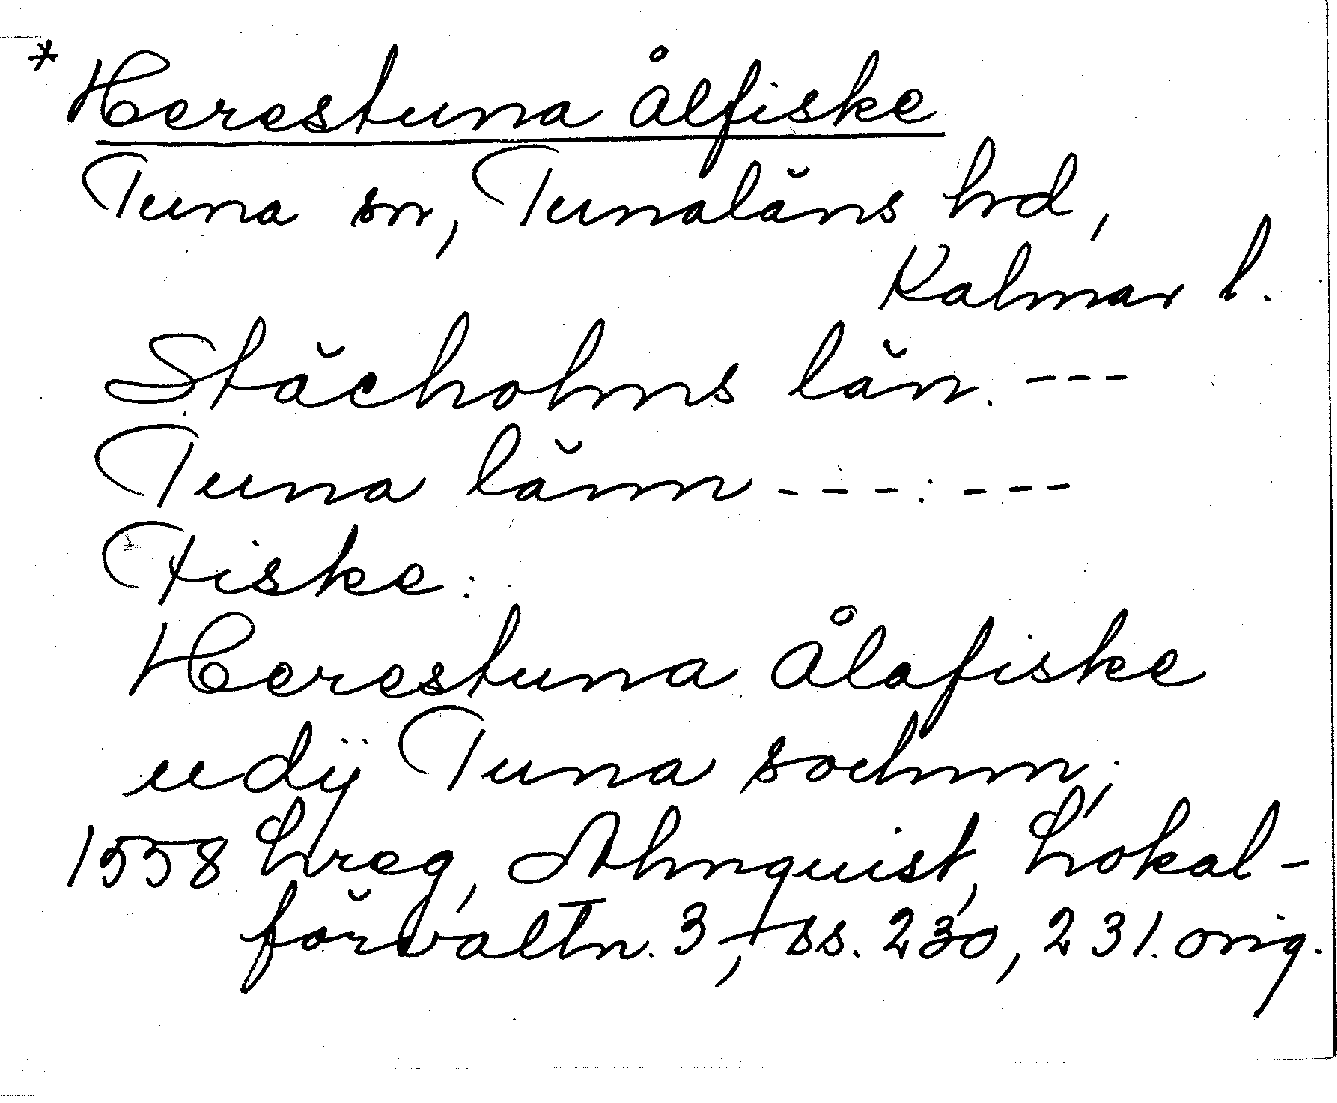 * Herestuna ålfiske
Tuna sn, Tunaläns hd,
Kalmar l.
Stächolms län. ---
Tuna länn ---:---
Fiske:
Herestuna Ålafiske
udÿ Tuna sochnn;
1558 Lreg, Almquist, Lokal-
förvaltn. 3, ss. 230, 231. orig.